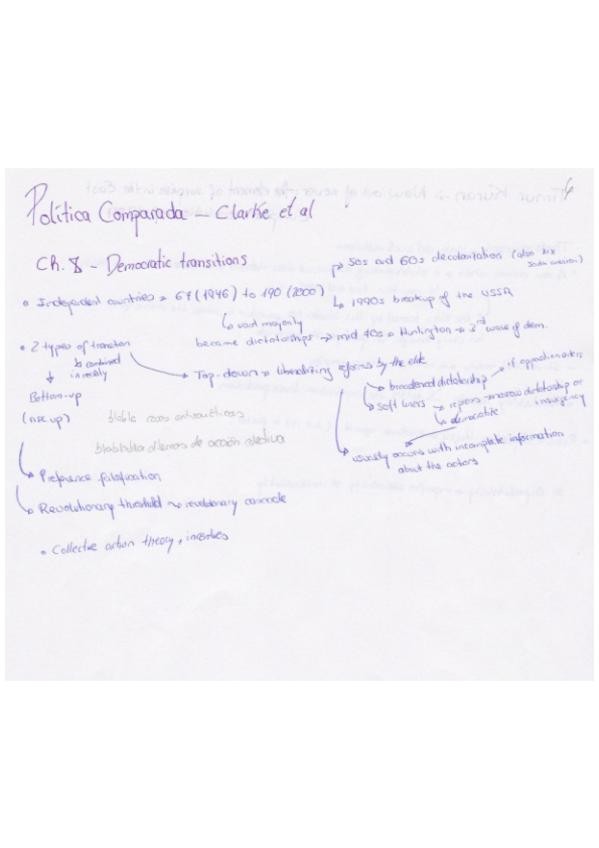 Política Comparada – Clarke et al
Ch. 8 – Democratic transitions
50s and 60s decolonization (also
Independent countries 67 (1946) to 190 (2000)
1990s breakup of the USSR
vast majority
became dictatorships → mid 70s Huntington 3rd wave of dem.
2 types of transition
combined
Top-down liberalizing reforms by the elite
Bottom-up
(rise up)
broadened dictatorship
if opposition
soft liners
repress narrow dictatorship or
insurgency
democratic
blabla
blablabla dilemas de acción colectiva
usually occurs with incomplete information
about the actors
Preference falsification
Revolutionary threshold revolutionary cascade
Collective action theory, incentives